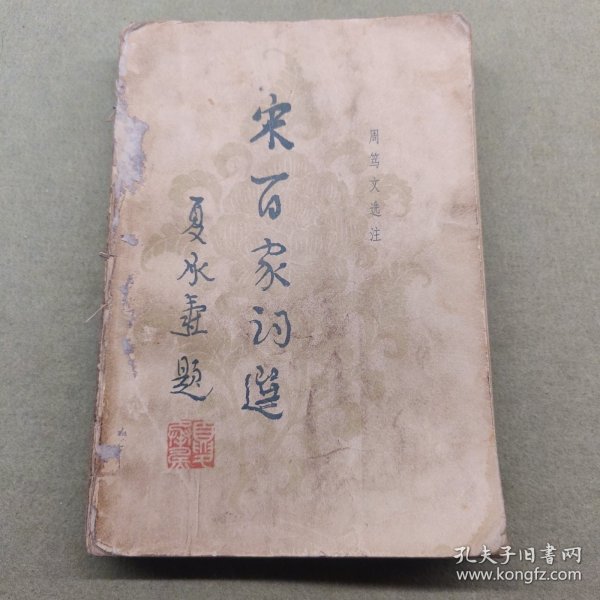 周笃文选注
宋百家词選
夏承燾題
孔夫子旧书网
www.kongfz.com